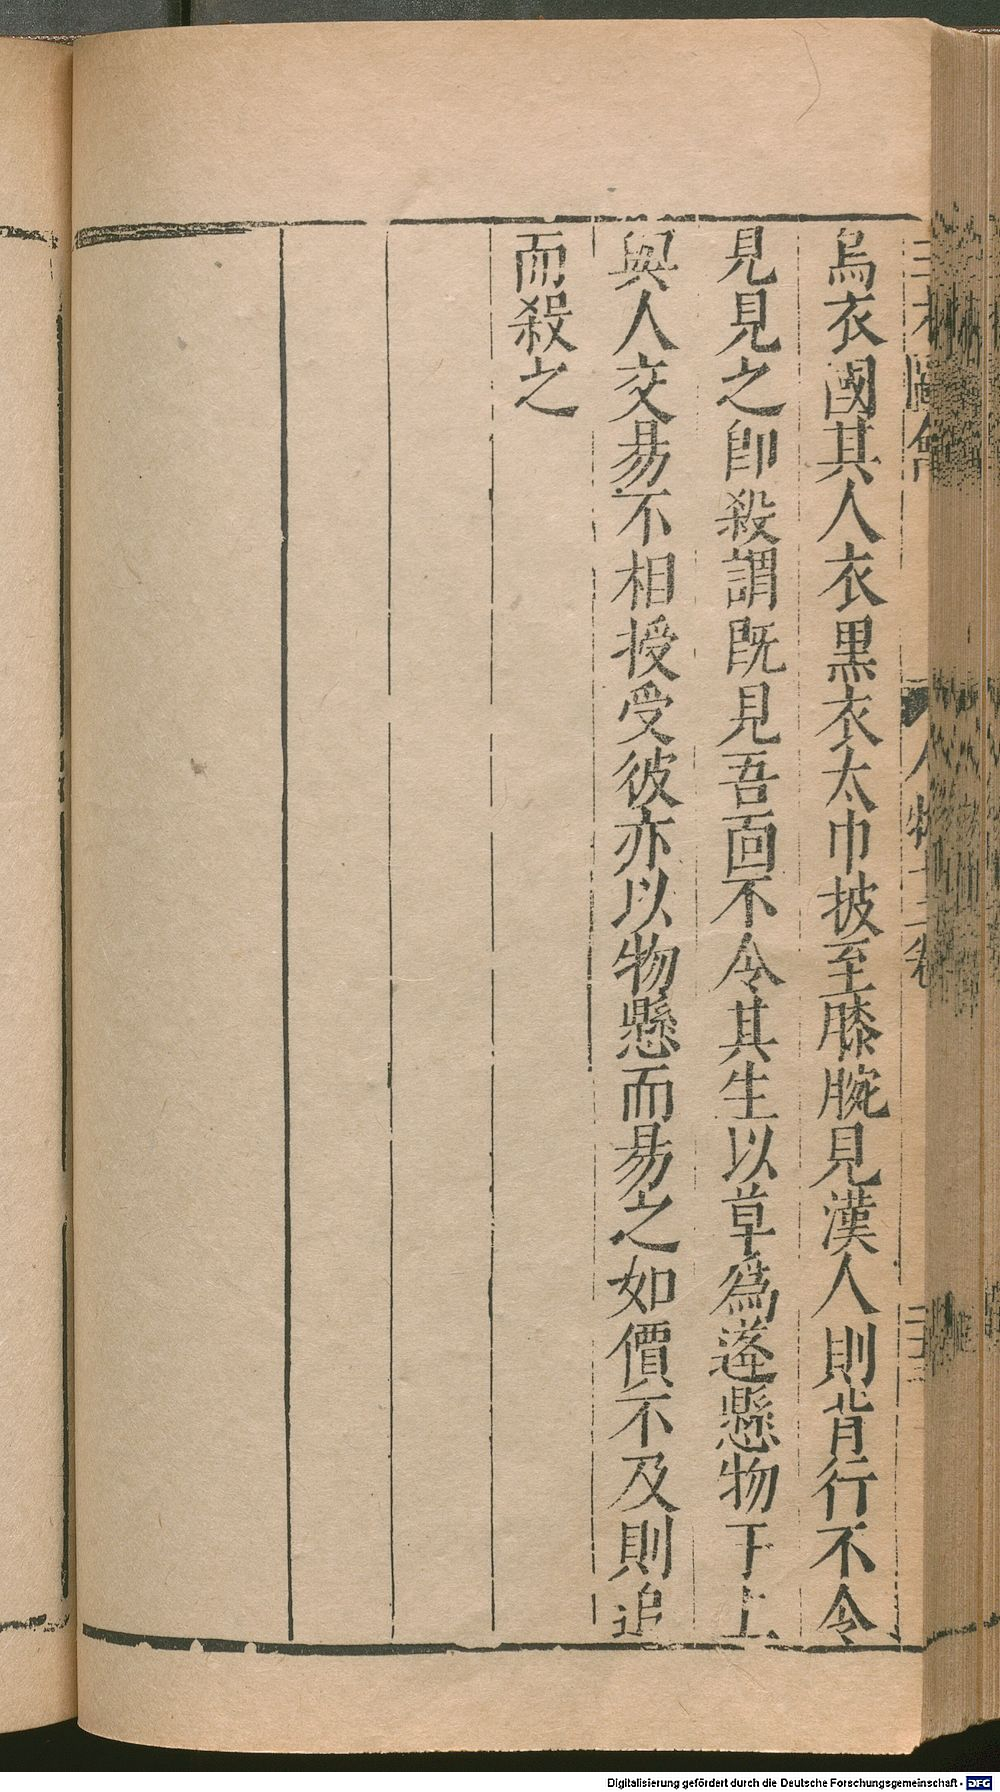 三才圖會 人物十二卷 二十三
烏衣國其人衣黑衣太巾披至膝腕見漢人則背行不令
見見之即殺謂既見吾面不令其生以草爲蓬懸物于上
與人交易不相授受彼亦以物懸而易之如價不及則追
而殺之
Digitalisierung gefördert durch die Deutsche Forschungsgemeinschaft - DFG